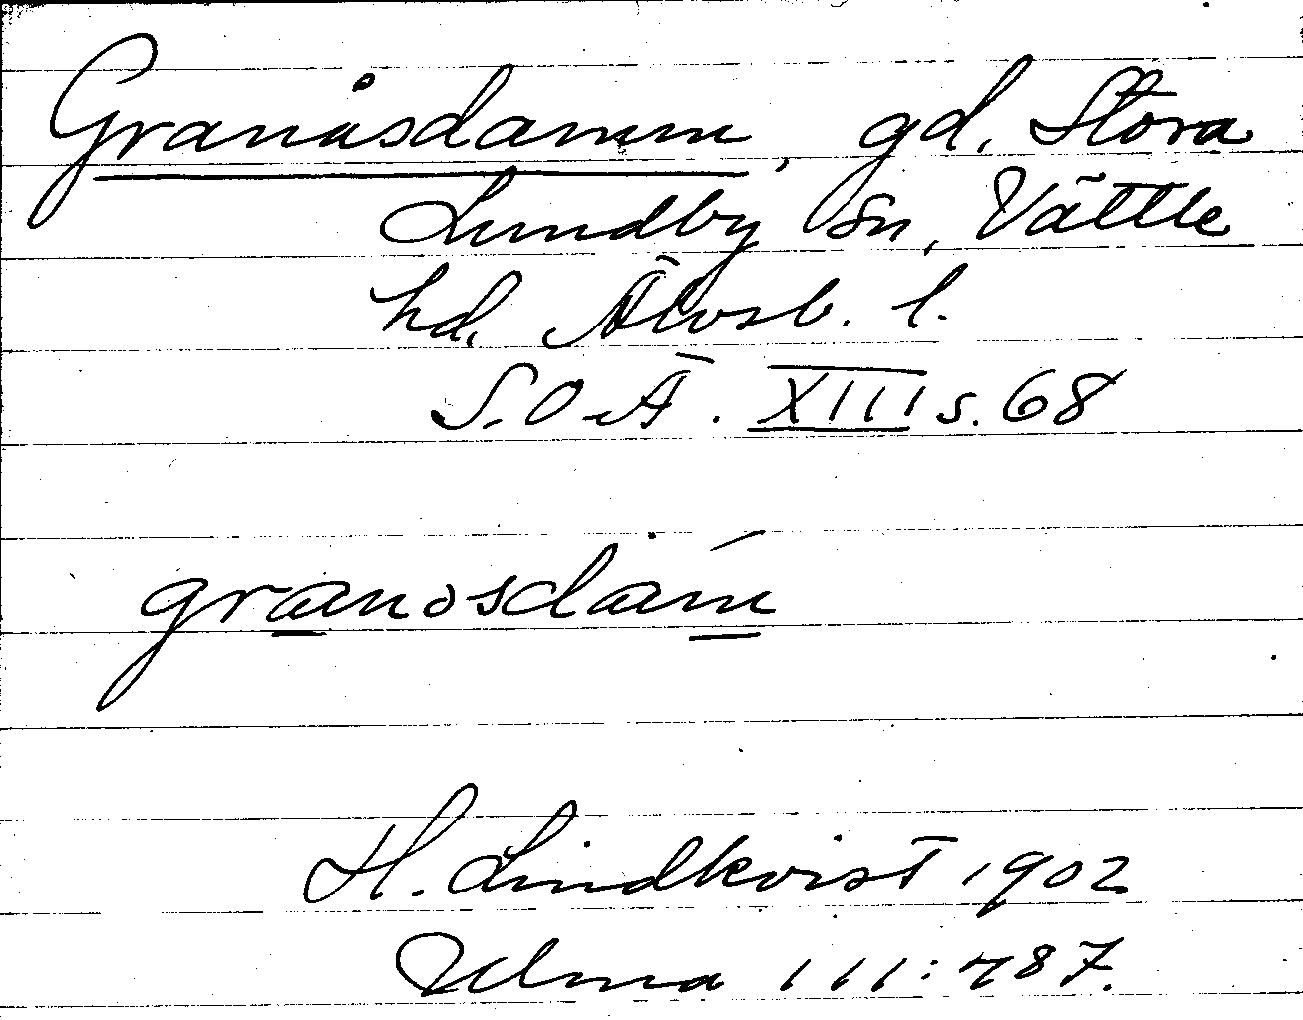 Granåsdamm, gd, Stora
Lundby sn, Vättle
hd, Älvsb. l.
S.O.Ä. XIII s. 68
granosdam̄
H. Lindkvist 1902
Ulma 111:787.